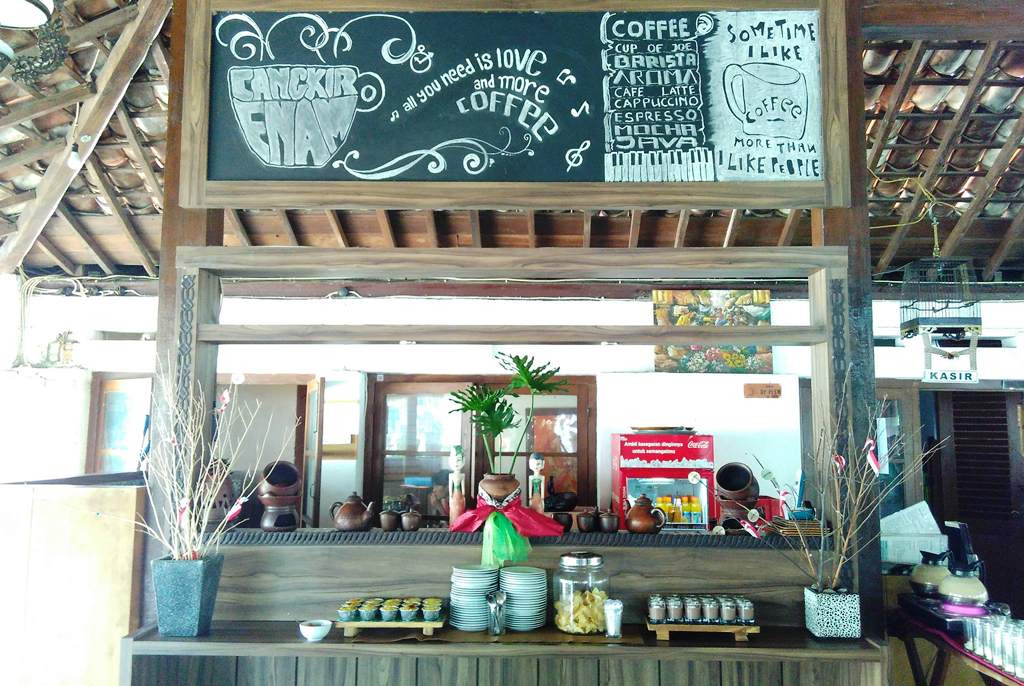 CANGKIR
ENAM
all you need is love
and more
COFFEE
COFFEE
CUP OF JOE
BARISTA
AROMA
CAFE LATTE
CAPPUCCINO
ESPRESSO
MOCHA
JAVA
SOMETIME
I LIKE
COFFEE
MORE THAN
I LIKE PEOPLE
KASIR
Ambil kesegaran dinginnya
untuk semangatmu
Coca-Cola